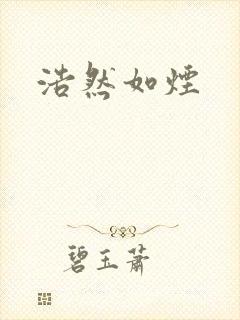 浩然如煙
碧玉蕭